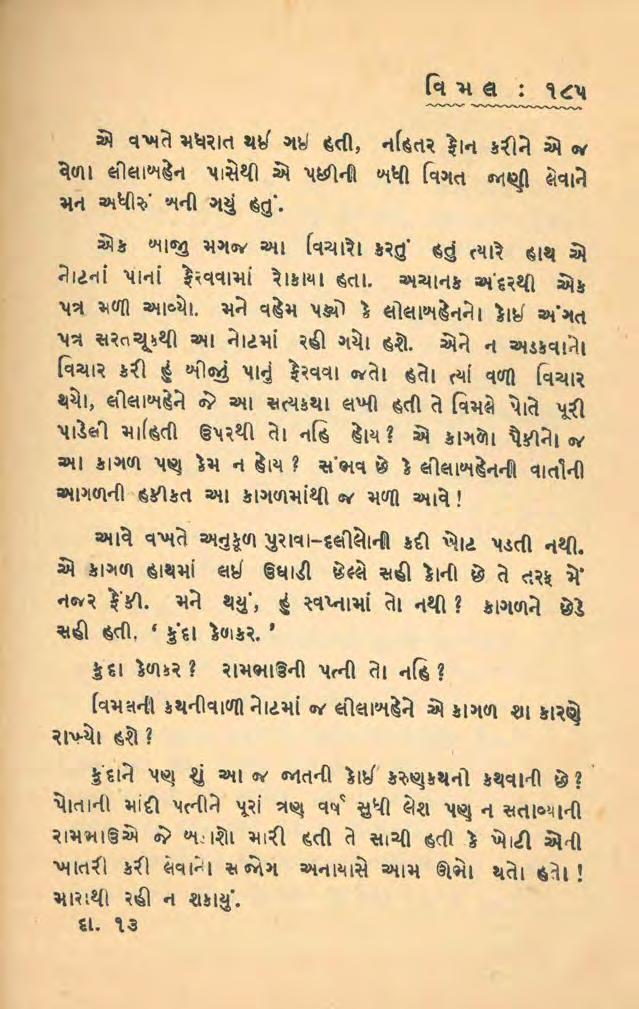 વિમલ : ૧૮૫
એ વખતે મધરાત થઈ ગઈ હતી, નહિતર ફોન કરીને એ જ
વેળા લીલાબહેન પાસેથી એ પછીની બધી વિગત જાણી લેવાને
મન અધીરું બની ગયું હતું.
એક બાજુ મગજ આ વિચારો કરતું હતું ત્યારે હાથ એ
નોટનાં પાનાં ફેરવવામાં રોકાયા હતા. અચાનક અંદરથી એક
પત્ર મળી આવ્યો. મને વહેમ પડ્યો કે લીલાબહેનનો કોઈ અંગત
પત્ર સરતચૂકથી આ નોટમાં રહી ગયો હશે. એને ન અડકવાનો
વિચાર કરી હું બીજું પાનું ફેરવવા જતો હતો ત્યાં વળી વિચાર
થયો, લીલાબહેને જે આ સત્યકથા લખી હતી તે વિમલે પોતે પૂરી
પાડેલી માહિતી ઉપરથી તો નહિ હોય ? એ કાગળો પૈકીનો જ
આ કાગળ પણ કેમ ન હોય ? સંભવ છે કે લીલાબહેનની વાર્તાની
આગળની હકીકત આ કાગળમાંથી જ મળી આવે !
આવે વખતે અનુકૂળ પુરાવા–દલીલોની કદી ખોટ પડતી નથી.
એ કાગળ હાથમાં લઈ ઉઘાડી છેલ્લે સહી કોની છે તે તરફ મેં
નજર ફેંકી. મને થયું, હું સ્વપ્નામાં તો નથી ? કાગળને છેડે
સહી હતી, ‘ કુંદા કેળકર. ’
કુંદા કેળકર ? રામભાઉની પત્ની તો નહિ ?
વિમલની કથનીવાળી નોટમાં જ લીલાબહેને એ કાગળ શા કારણે
રાખ્યો હશે ?
કુંદાને પણ શું આ જ જાતની કોઈ કરુણકથની કથવાની છે ?
પોતાની માંદી પત્નીને પૂરાં ત્રણ વર્ષ સુધી લેશ પણ ન સતાવ્યાની
રામભાઉએ જે બડાશો મારી હતી તે સાચી હતી કે ખોટી એની
ખાતરી કરી લેવાનો સંજોગ અનાયાસે આમ ઊભો થતો હતો !
મારાથી રહી ન શકાયું.
દા. ૧૩